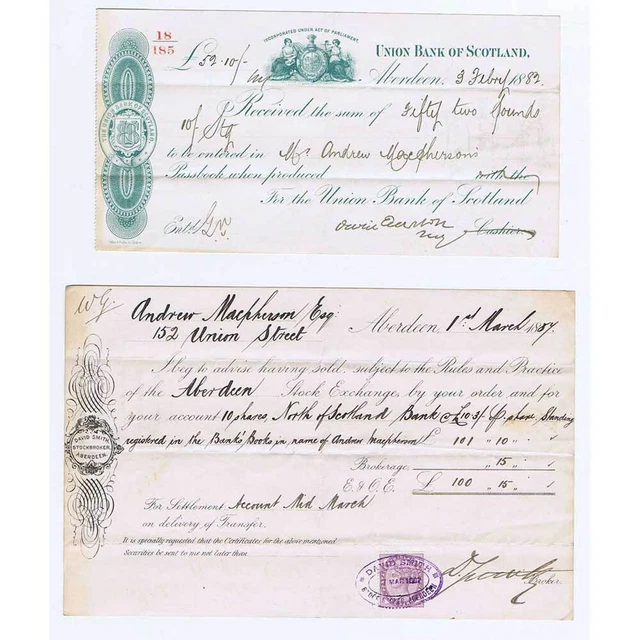 18
185
INCORPORATED UNDER ACT OF PARLIAMENT.
UNION BANK OF SCOTLAND.
£52.10/-
Aberdeen, 3 Febry 1882
Received the sum of Fifty two pounds
10/ Stg
to be entered in Mr. Andrew Macpherson's
Passbook when produced
For the Union Bank of Scotland
THE UNION BANK OF SCOTLAND
Entd.
Cashier.
W.G.
Andrew Macpherson Esq:
152 Union Street
Aberdeen, 1st March 1887.
I beg to advise having sold, subject to the Rules and Practice
of the Aberdeen Stock Exchange, by your order and for
your account 10 shares, North of Scotland Bank @ £10 3/- P. share, Standing
registered in the Bank's Books in name of Andrew Macpherson £ 101 " 10 "
Brokerage " 15 "
E. & O.E. £ 100 " 15 "
For Settlement Account Mid March
on delivery of Transfer.
It is specially requested that the Certificates for the above mentioned
Securities be sent to me not later than
DAVID SMITH
STOCKBROKER,
ABERDEEN.
DAVID SMITH
Broker.